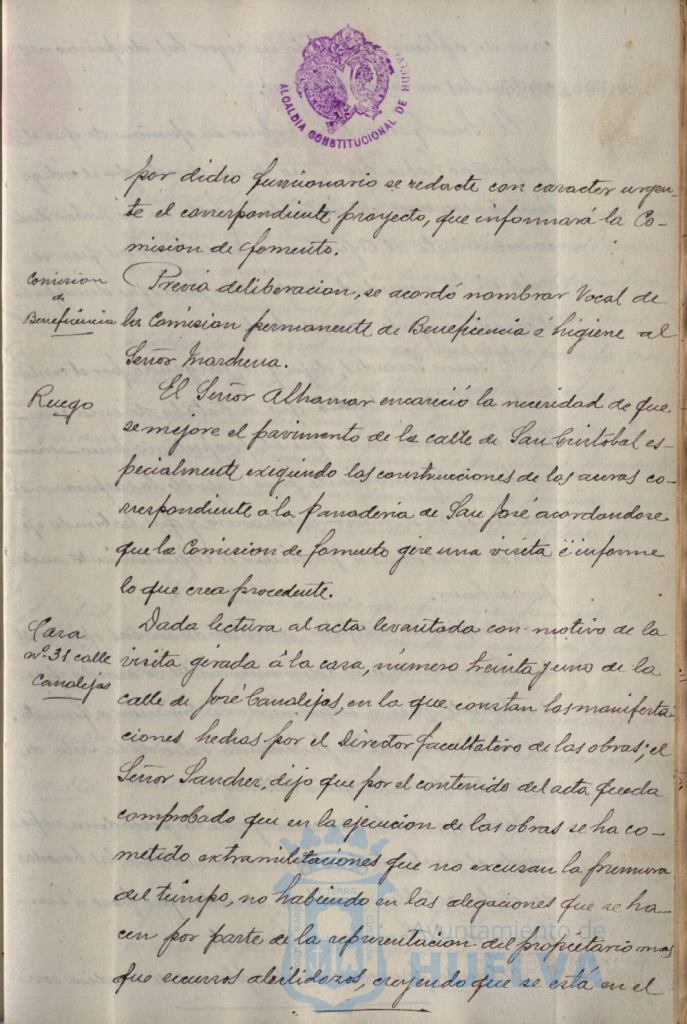 ALCALDIA CONSTITUCIONAL DE HUELVA
por dicho funcionario se redacte con caracter urgen-
te el correspondiente proyecto, que informará la Co-
mision de fomento.
Comision
de
Beneficencia
Previa deliberacion, se acordó nombrar Vocal de
la Comision permanente de Beneficencia é higiene al
Señor Marchena.
Ruego
El Señor Alhamar encareció la necesidad de que
se mejore el pavimento de la calle de San Cristobal es-
pecialmente exigiendo las construcciones de las aceras co-
rrespondiente á la Panaderia de San José acordandose
que la Comision de fomento gire una visita é informe
lo que crea procedente.
Casa
nº 31 calle
Canalejas
Dada lectura al acta levantada con motivo de la
visita girada á la casa, número treinta y uno de la
calle de José Canalejas, en la que constan las manifesta-
ciones hechas por el Director facultativo de las obras; el
Señor Sanchez, dijo que por el contenido del acta queda
comprobado que en la ejecucion de las obras se ha co-
metido extramilitaciones que no excusan la premura
del tiempo, no habiendo en las alegaciones que se ha-
cen por parte de la representacion del propietario mas
que recursos, creyendo que se está en el
Ayuntamiento de
HUELVA